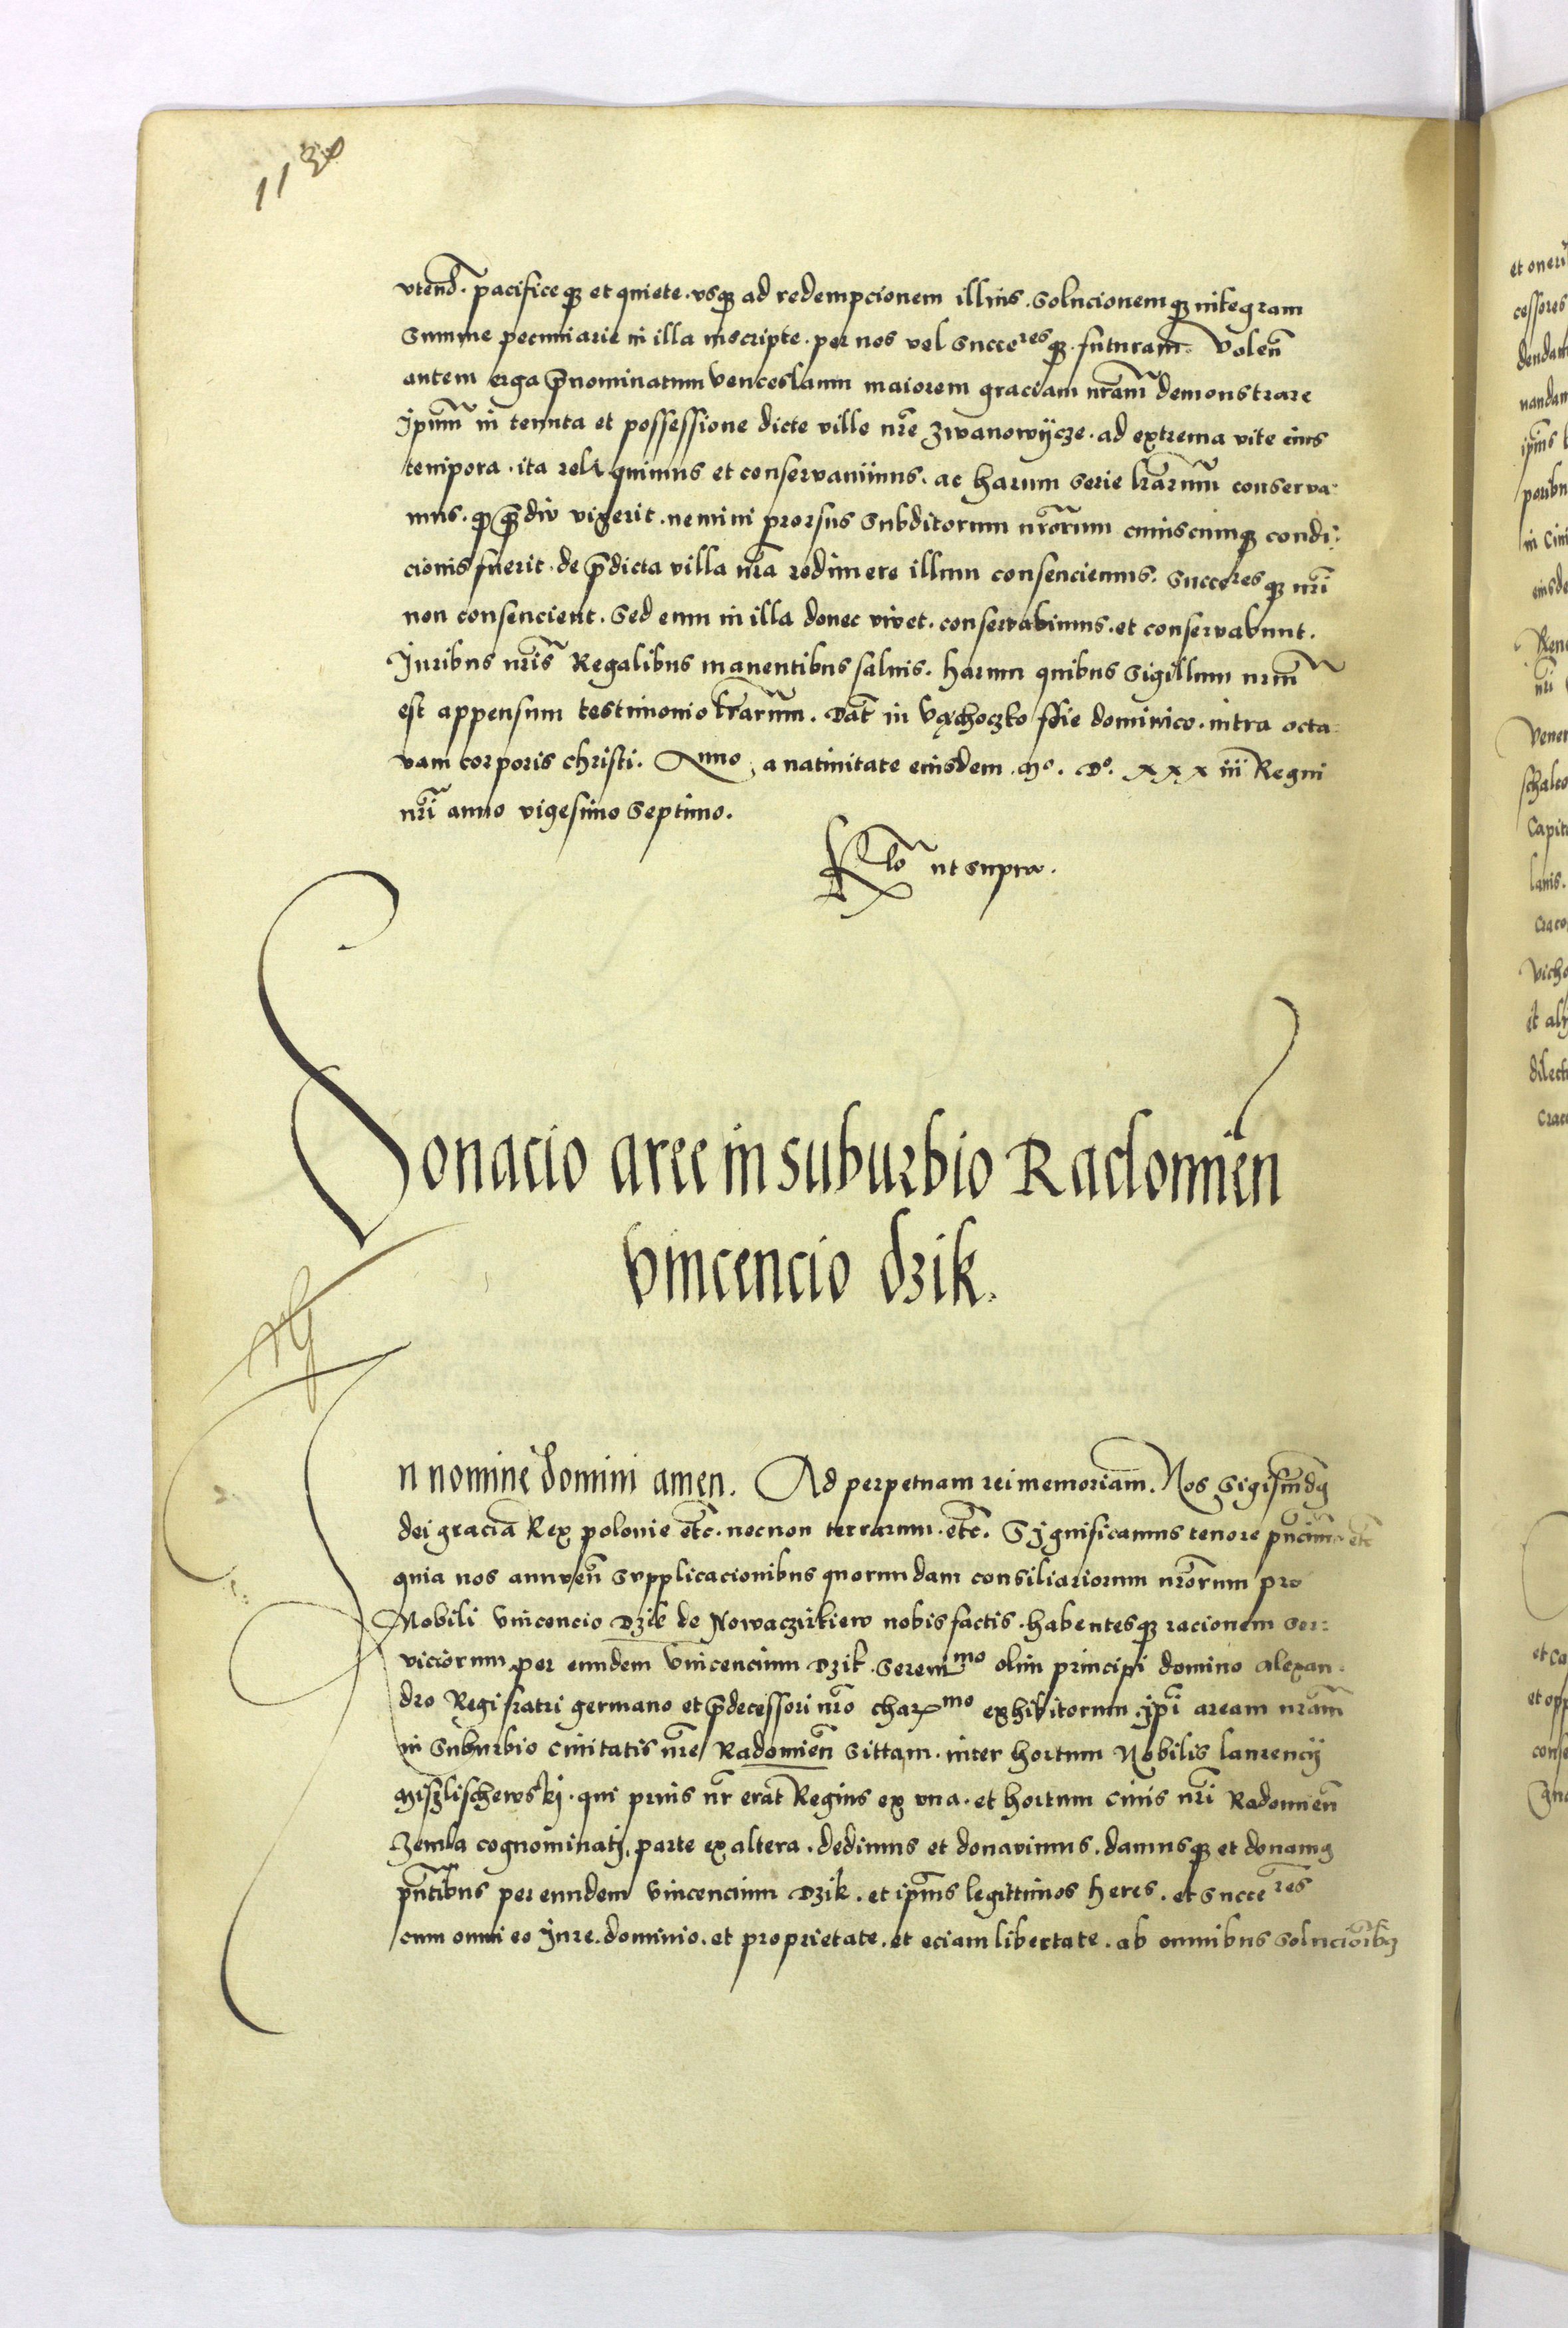 113
vtend. pacifice q3 et quiete. vsq3 ad redempcionem illius. Solucionemq3 integram
Summe pecuniarie in illa inscripte. per nos vel Succeres q3. futuram. Volen̄
autem erga p̄nominatum Venceslaum maiorem graciam nr̄am demonstrare
Ipsum̄ in tenuta et possessione dicte ville nr̄e Zwanowÿcze. ad extrema vite eius
tempora. ita reliquimus et conservavimus. ac harum serie lr̄arum conserva-
mus. q3 q̄3diu vixerit. nemini prorsus Subditorum nr̄orum cuiuscumq3 condi-
cionis fuerit. de p̄dicta villa nr̄a redimere illum consenciemus. Succeres q3 nr̄i
non consencient. Sed eum in illa donec vivet. conservabimus. et conservabunt.
Juribus nr̄is Regalibus manentibus salvis. harum quibus Sigillum nr̄um
est appensum testimonio lr̄arum. Dat̄ in Vąchoczko fr̄ie dominico. intra octa-
vam corporis christi. Anno, a nativitate eiusdem Mo. Do. xxx iii Regni
nr̄i anno vigesimo Septimo.
Rlō ut supra.
Donacio aree in suburbio Radomien̄
Vincencio dzik.
In nomine domini amen. Ad perpetuam rei memoriam. Nos Sigism̄dq
dei gracia Rex polonie etc̄. necnon terrarum. etc̄. Significamus tenore pn̄cium etc̄
quia nos annuen̄ Supplicacionibus quorundam consiliariorum nr̄orum pro
Nobili Vincencio Dzik de Nowaczirkiew nobis factis. habentesq3 racionem Ser-
viciorum per eundem Vincencium Dzik. Serenimo olim principi domino Alexan-
dro Regi fratri germano et p̄decessori nr̄o charmo exhibitorum. ip̄i aream nr̄am
in Suburbio Civitatis nr̄e Radomien̄ Sittam. inter hortum Nobilis laurencÿ
Miszlischewskj. qui prius nr̄ erat̄ Regius ex vna. et hortum Civis nr̄i Radomien̄
Zemla cognominatj, parte ex altera. dedimus et donavimus. damusq3 et donamq
pn̄tibus per eundem Vincencium Dzik. et ip̄ius legittimos heres. et Succeres
cum omni eo Jure. dominio. et proprietate. et eciam libertate. ab omnibus Solucio̅ibq